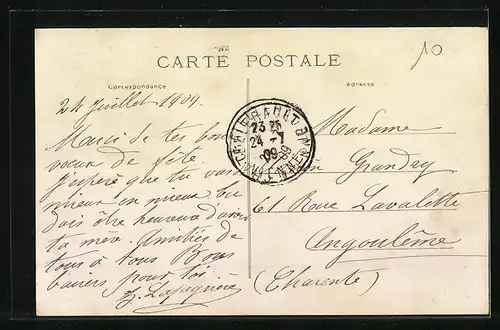 10
CARTE POSTALE
Correspondance
Adresse
24 Juillet 1909.
Merci de tes bons
vœux de fête
j'espère que tu vas
mieux en mieux tu
dois être heureux d'avoir
ta mère. Amitiés de
tous à tous Bons
baisers pour toi.
23 35
24 - 7
09
VIENNE
Madame
Grandry
61 Rue Lavalette
Angoulême
(Charente)